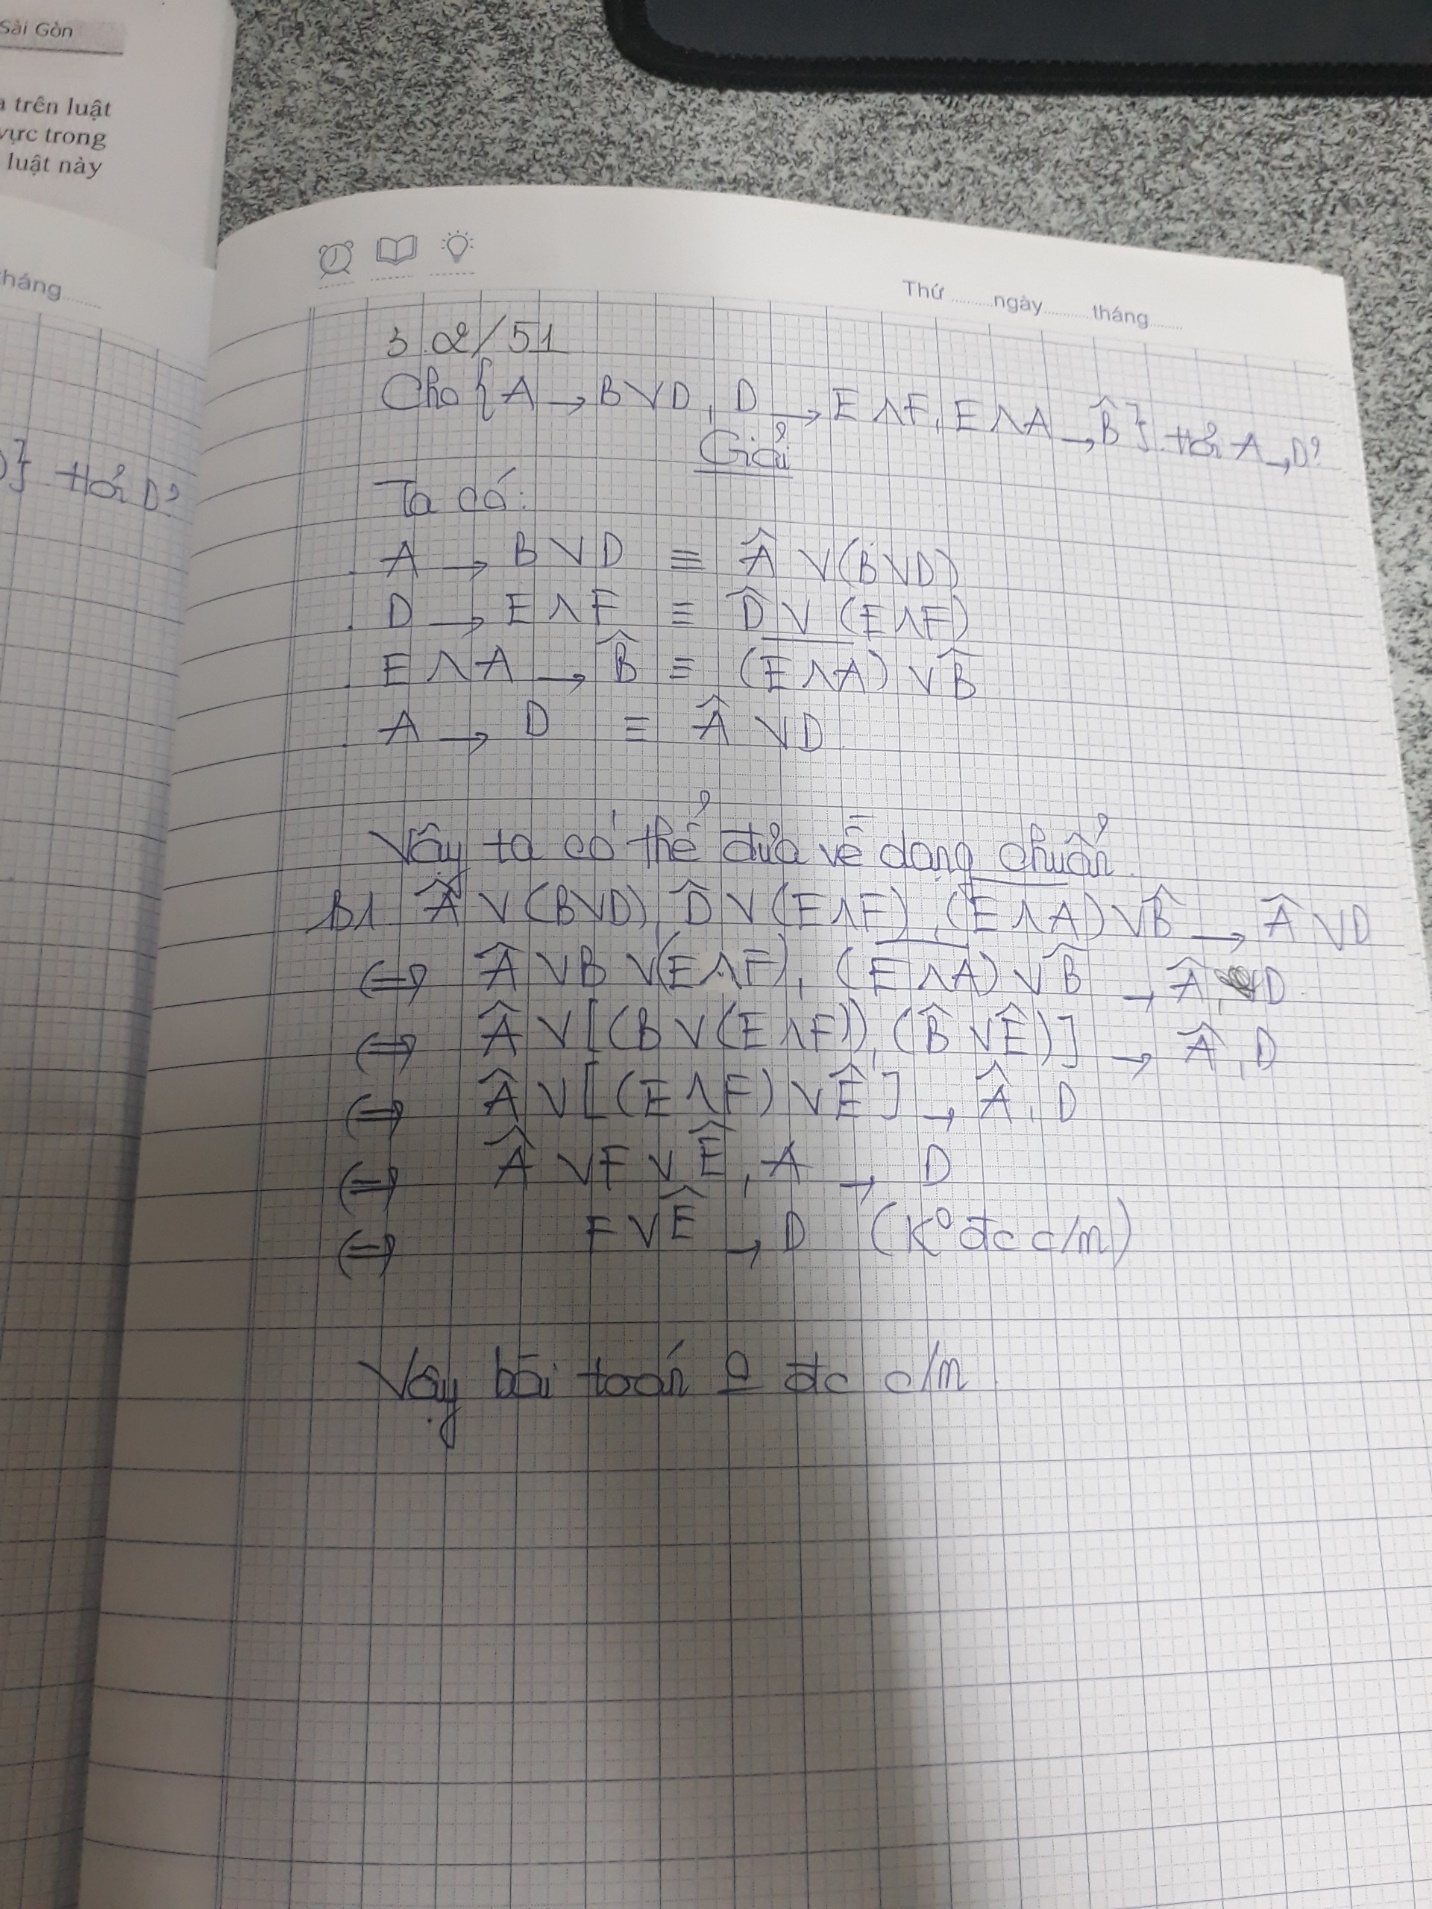 Sài Gòn
trên luật
vực trong
luật này
tháng
} Hỏi D?
Thứ ........ ngày ........ tháng ........
3.2/51
Cho {A → B ∨ D, D → E ∧ F, E ∧ A → B̂} Hỏi A → D?
Giải
Ta có:
A → B ∨ D ≡ Â ∨ (B ∨ D)
D → E ∧ F ≡ D̂ ∨ (E ∧ F)
E ∧ A → B̂ ≡ (E̅ ̅∧̅ ̅A̅) ∨ B̂
A → D ≡ Â ∨ D
Vậy ta có thể đưa về dạng chuẩn.
B1 Â ∨ (B ∨ D), D̂ ∨ (E ∧ F), (E̅ ̅∧̅ ̅A̅) ∨ B̂ → Â ∨ D
⇔ Â ∨ B ∨ (E ∧ F), (E̅ ̅∧̅ ̅A̅) ∨ B̂ → Â, D
⇔ Â ∨ [(B ∨ (E ∧ F)), (B̂ ∨ Ê)] → Â, D
⇔ Â ∨ [(E ∧ F) ∨ Ê] → Â, D
⇔ Â ∨ F ∨ Ê, A → D
⇔ F ∨ Ê → D (K⁰ đc c/m)
Vậy bài toán đc c/m